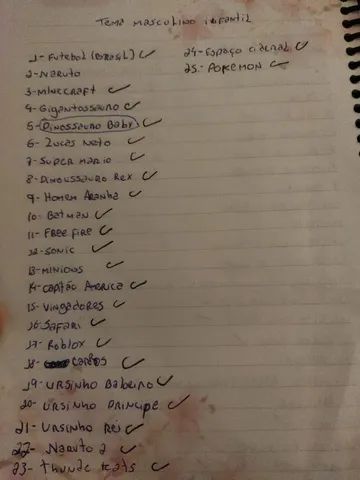 Tema masculino infantil
1- Futebol (Brasil) ✓
2- Naruto
3- Minecraft ✓
4- Gigantossauro ✓
5- Dinossauro Baby ✓
6- Lucas Neto ✓
7- Super Mario ✓
8- Dinoussauro Rex ✓
9- Homem Aranha ✓
10- Batman ✓
11- Free Fire ✓
12- Sonic ✓
13- Minions ✓
14- Capitão America ✓
15- Vingadores ✓
16- Safari ✓
17- Roblox ✓
18- Carros ✓
19- Ursinho Baloeiro ✓
20- Ursinho Principe ✓
21- Ursinho Rei ✓
22- Naruto 2 ✓
23- Thunde Kats ✓
24- Espaço cideral ✓
25- Pokemon ✓